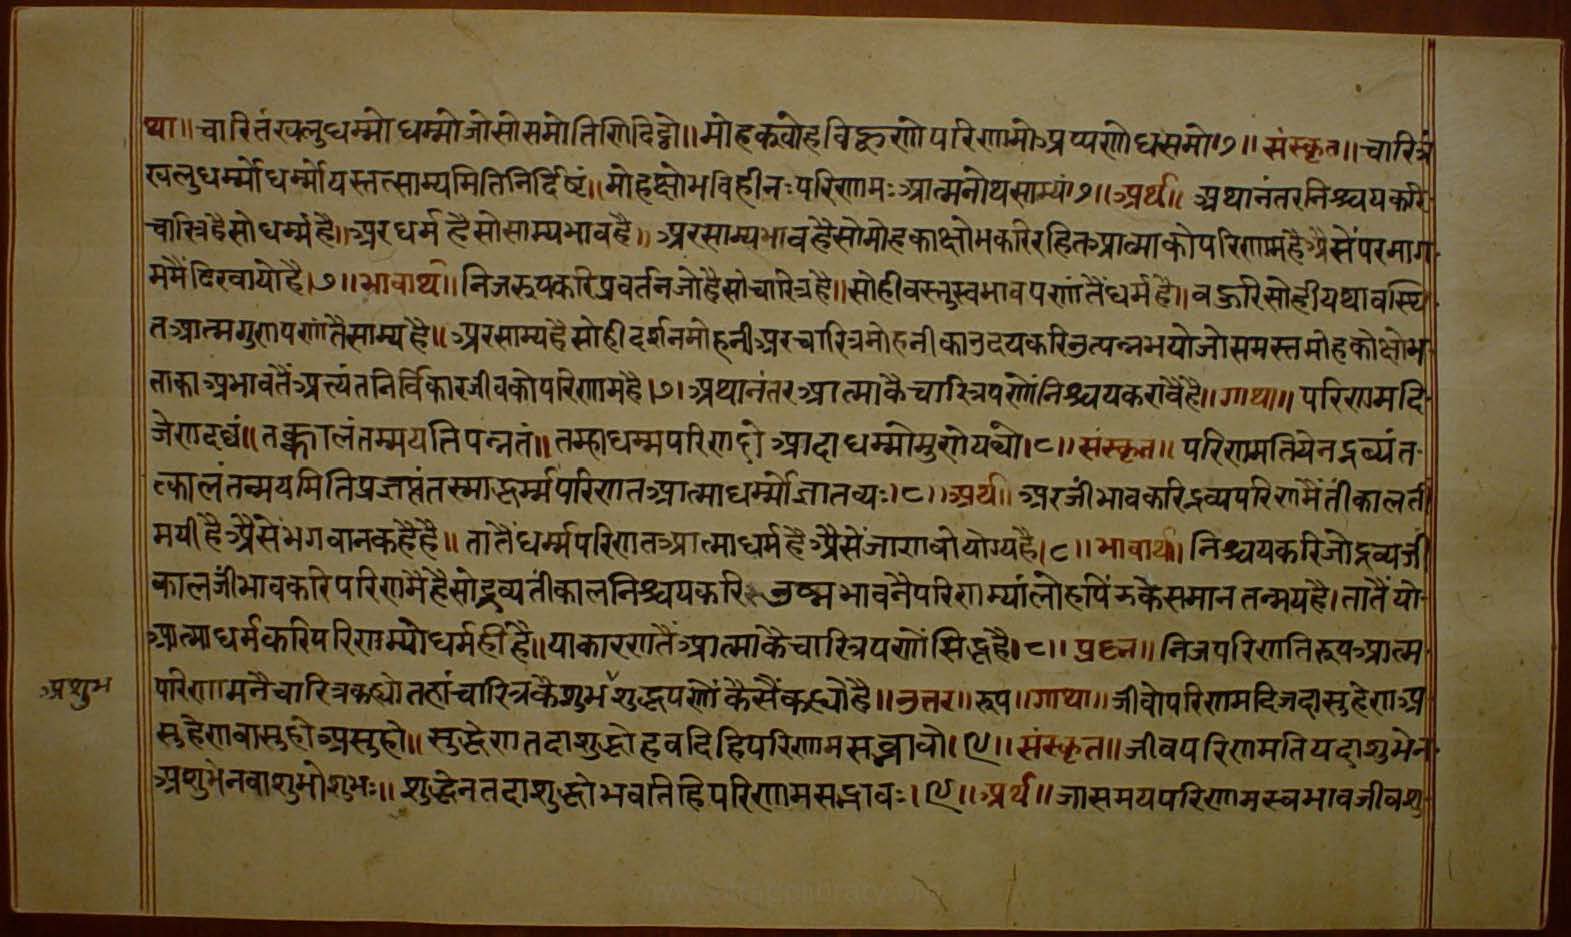 था॥ चारित्तं खलु धम्मो धम्मो जो सो समो ति णिद्दिट्ठो॥ मोहक्खोहविहूणो परिणामो अप्पणो धसमो।७॥ संस्कृत॥ चारित्रं
खलु धर्म्मो धर्म्मो यस्तत्साम्यमिति निर्दिष्टं॥ मोहक्षोभविहीनः परिणामः आत्मनो थ साम्यं।७॥ अर्थ॥ अथानंतर निश्चयकरि
चारित्र है सो धर्म्म है॥ अर धर्म है सो साम्यभाव है॥ अर साम्यभाव है सो मोह का क्षोभकरि रहित आत्मा को परिणाम है अैसें परमाग
ममैं दिखायो है।७॥ भावार्थ॥ निजरूपकरि प्रवर्तन जो है सो चारित्र है॥ सो ही वस्तुस्वभावपणांतैं धर्म है॥ बहुरि सो ही यथावस्थि
त आत्मगुणपणांतै साम्य है॥ अर साम्य है सो ही दर्शनमोहनी अर चारित्रमोहनी का उदयकरि उत्पन्न भयो जो समस्त मोह को क्षोभ
ताका अभावतैं अत्यंत निर्विकार जीव को परिणाम है।७। अथानंतर आत्मा कै चारित्रपणों निश्चय करावै है॥ गाथा॥ परिणमदि
जेण दव्वं॥ तक्कालं तम्मयति पन्नतं॥ तम्हा धम्मपरिणदो आदा धम्मो मुणेयव्वो।८॥ संस्कृत॥ परिणमति येन द्रव्यं त
त्कालं तन्मयमिति प्रज्ञप्तं तस्माद्धर्म्मपरिणत आत्मा धर्म्मो ज्ञातव्यः।८॥ अर्थ॥ अर जीं भावकरि द्रव्य परिणमैं तीं काल ती
मयी है अैसें भगवान कहै है॥ तातैं धर्म्मपरिणत आत्मा धर्म है अैसें जाणवो योग्य है।८॥ भावार्थ॥ निश्चयकरि जो द्रव्य जीं
काल जीं भावकरि परिणमै है सो द्रव्य तीं काल निश्चयकरि उष्मभावनै परिणम्यां लोहपिंड के समान तन्मय है। तातैं यो
आत्मा धर्मकरि परिणम्यो धर्म ही है॥ या कारणतैं आत्मा कै चारित्रपणों सिद्ध है।८॥ प्रश्न॥ निजपरिणतिरूप आत्म
अशुभ
परिणामनै चारित्र कह्यो तहां चारित्र कै शुभ शुद्धपणों कैसैं कह्यो है॥ उत्तर॥ रूप॥ गाथा॥ जीवो परिणमदि जदा सुहेण अ
सुहेण वा सुहो असुहो॥ सुद्धेण तदा शुद्धो हवदि हि परिणामसब्भावो।९॥ संस्कृत॥ जीव परिणमति यदा शुभेन
अशुभेन वा शुभो शुभः॥ शुद्धेन तदा शुद्धो भवति हि परिणामसद्भावः।९॥ अर्थ॥ जा समय परिणामस्वभाव जीव शु